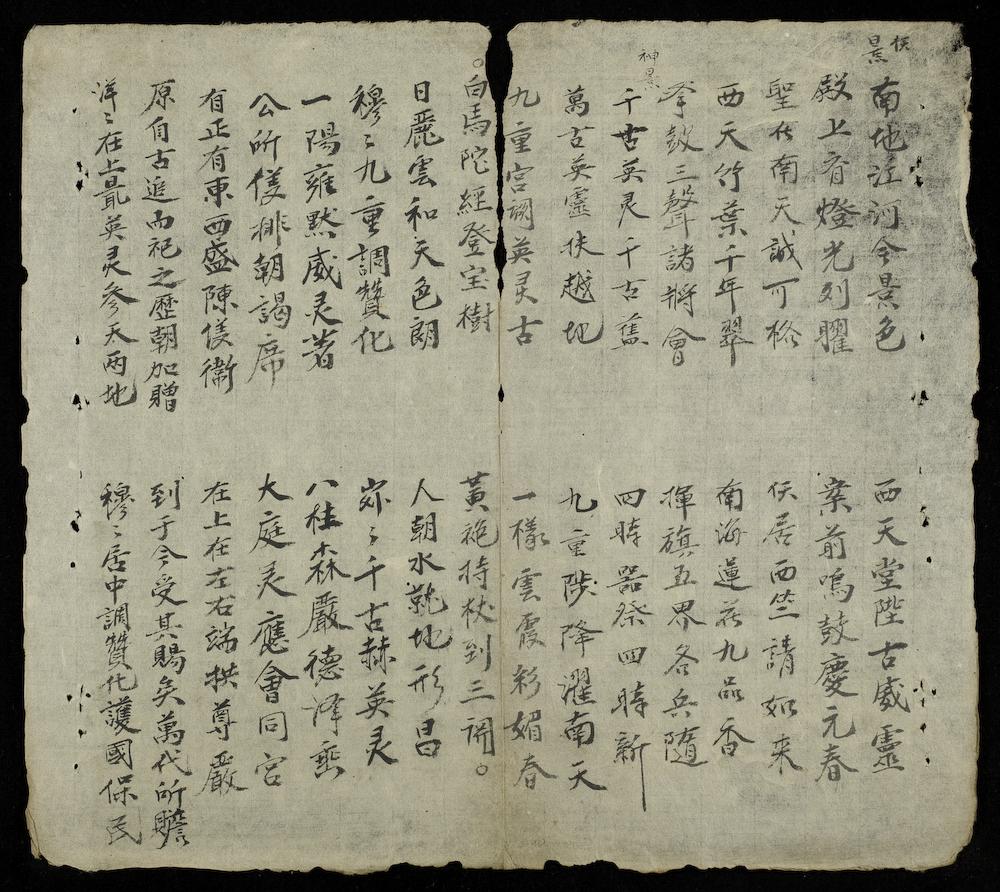 仸景
南地江河今景色
西天堂陛古威靈
殿上有燈光列曜
案前鳴鼓慶元春
聖在南天誠可格
仸居西竺請如来
西天竹葉千年翠
南海蓮花九品香
拳鼓三聲諸將會
揮旗五界各兵隨
神景
千古英灵千古舊
四時器祭四時新
萬古英靈扶越地
九重陟降濯南天
九重宮阙英灵古
一樣雲霞彩媚春
白馬陀經登宝樹
黃袍持杖到三阙
日麗雲和天色朗
人朝水地形昌
穆〻九重調贊化
〻千古赫英灵
一陽雍黙威灵著
八桂森嚴德泽埀
公所排朝謁席
大庭灵應會同宫
有正有東西盛陳衛
在上在左右端拱尊嚴
原自古追而祀之歷朝加贈
到于今受其賜矣萬代所瞻
洋〻在上最英灵參天兩地
穆〻居中調贊化護國保民